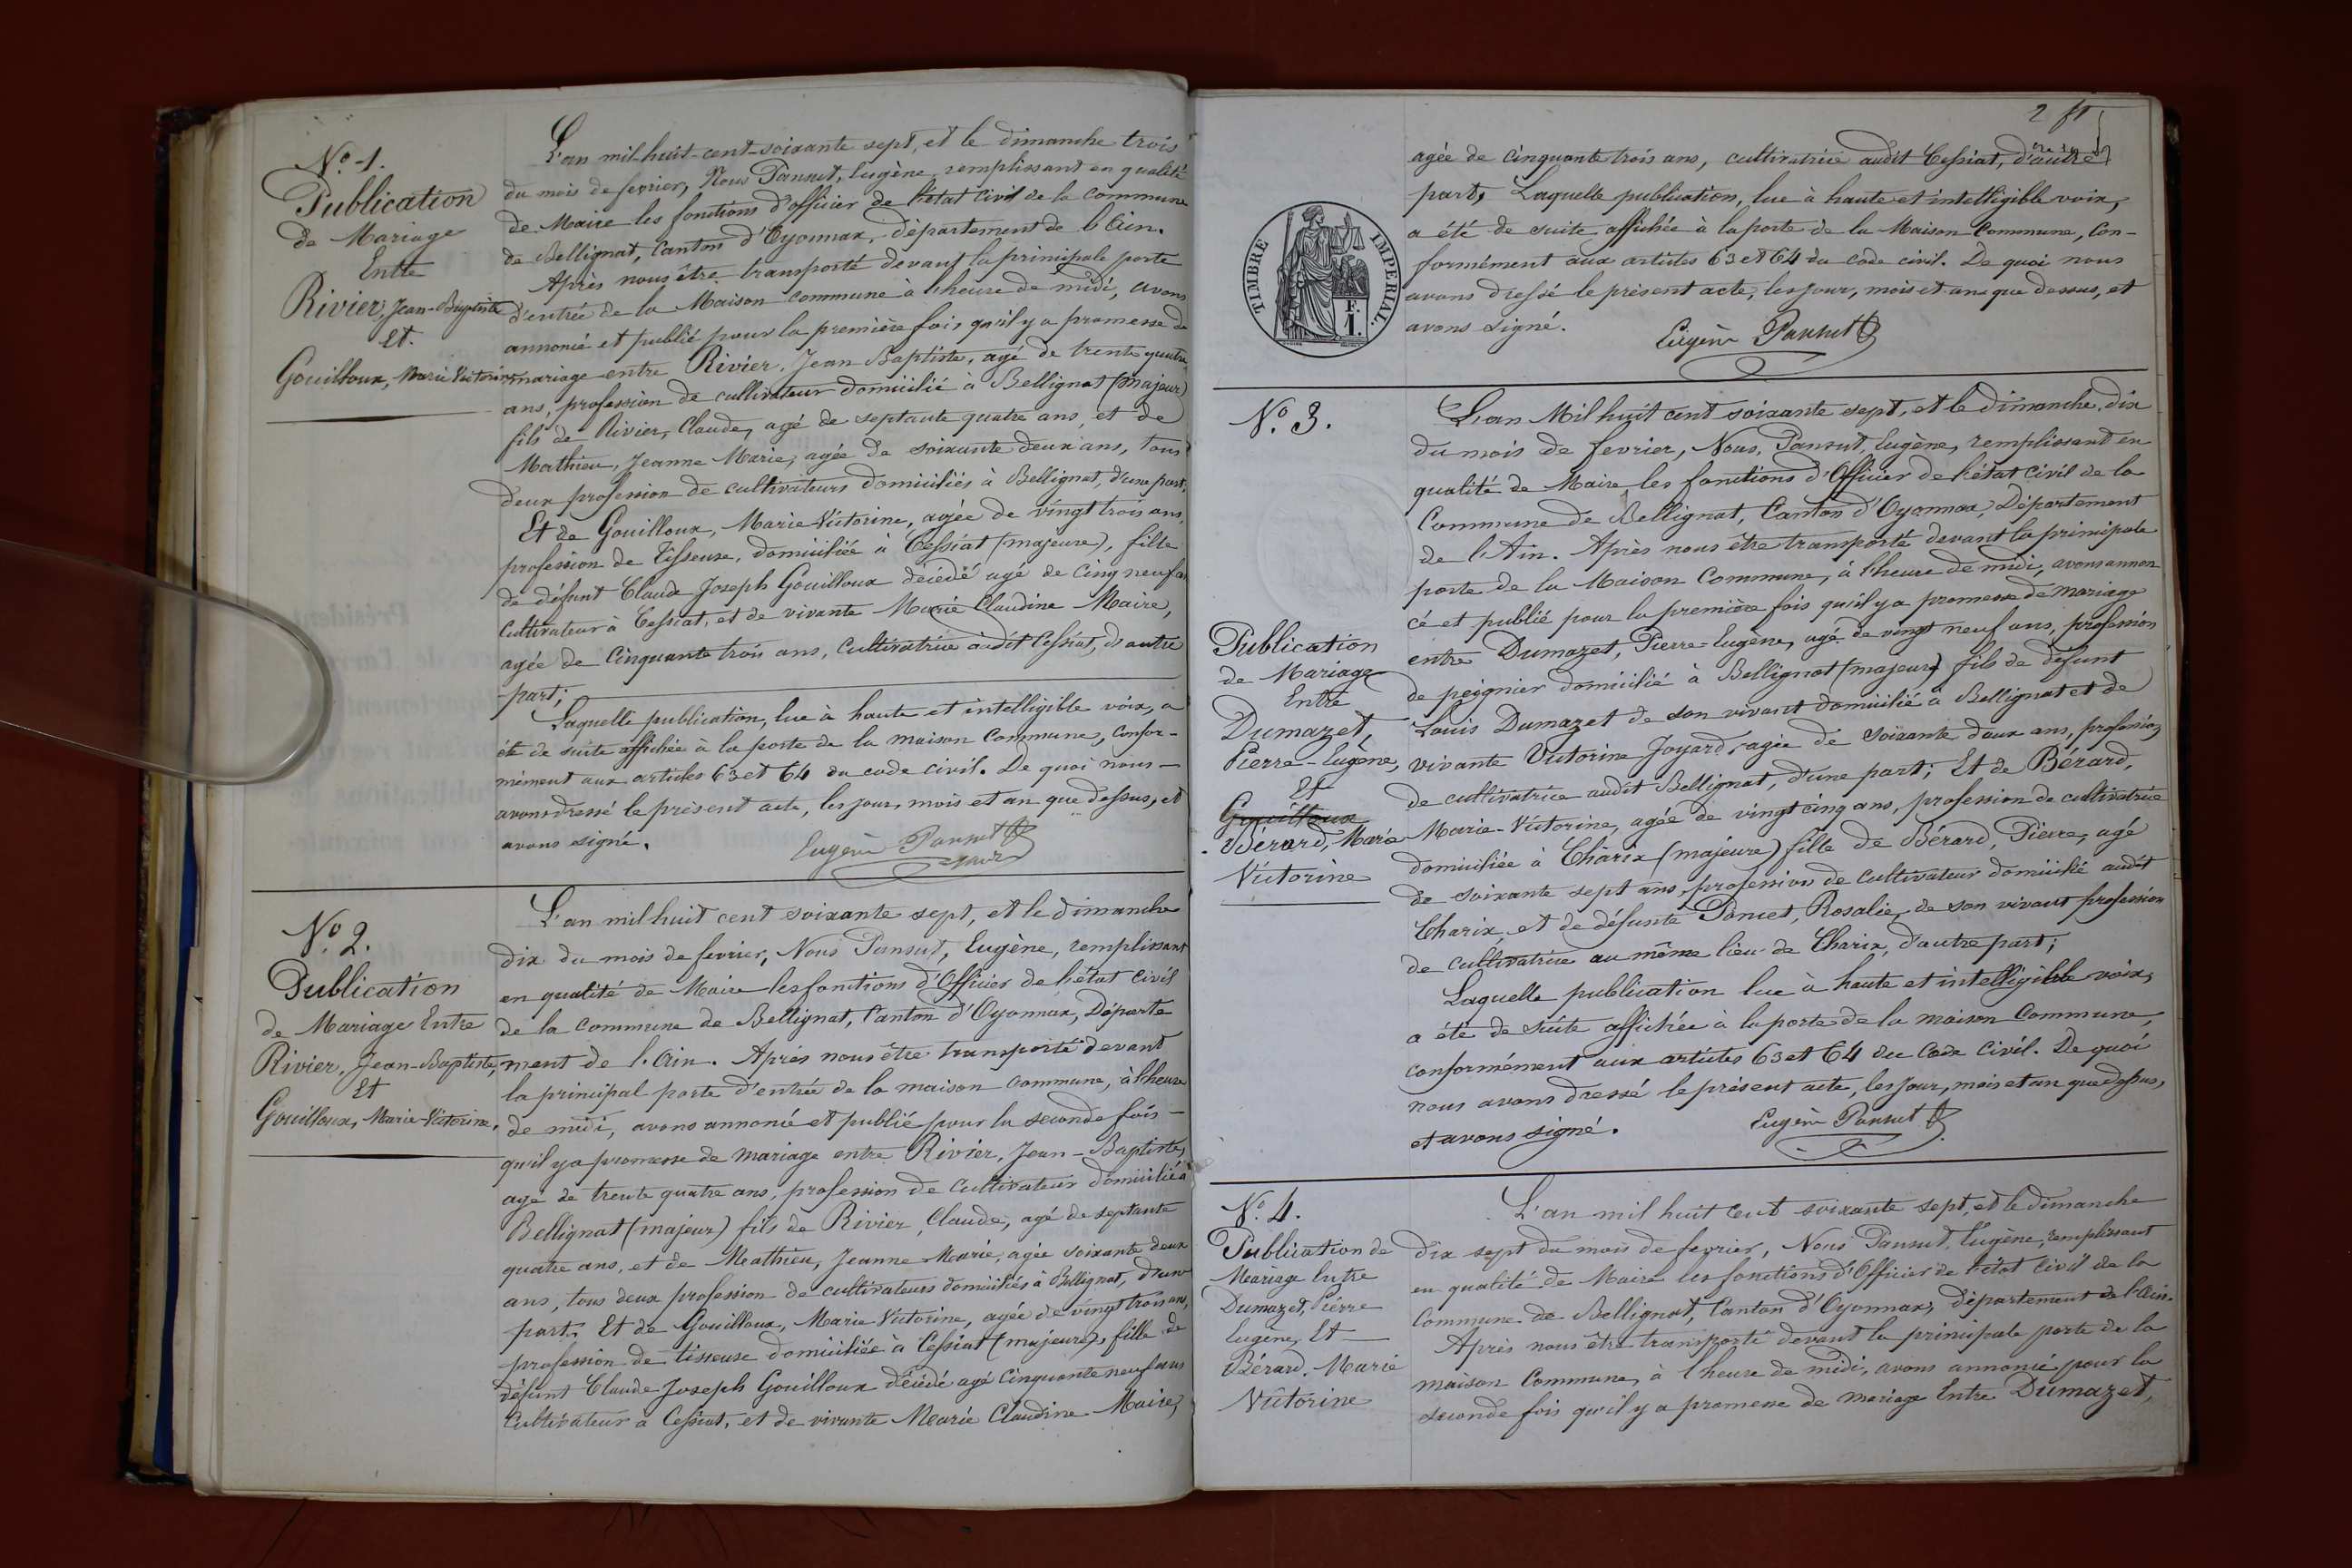 N.º 1.
Publication
de Mariage
Entre
Rivier, Jean-Baptiste
Et.
Gouilloux, Marie Victorine
L'an mil-huit-cent-soixante sept, et le dimanche trois
du mois de fevrier, Nous Pansut, Eugène, remplissant en qualité
de Maire les fonctions d'officier de l'état Civil de la Commune
de Bellignat, Canton d'Oyonnax, département de l'Ain.
Après nous être transporté devant la principale porte
d'entrée de la Maison commune à l'heure de midi, avons
annoncé et publié pour la première fois qu'il y a promesse de
mariage entre Rivier, Jean Baptiste, agé de trente quatre
ans, profession de cultivateur domicilié à Bellignat (majeur)
fils de Rivier, Claude, agé de septante quatre ans, et de
Mathieu, Jeanne Marie, agée de soixante deux ans, tous
deux profession de cultivateurs domiciliés à Bellignat, d'une part,
Et de Gouilloux, Marie Victorine, agée de vingt trois ans,
profession de Tisseuse, domiciliée à Cessiat (majeure), fille
de défunt Claude Joseph Gouilloux décédé agé de Cinq neuf
Cultivateur à Cessiat, et de vivante Marie Claudine Maire,
agée de Cinquante trois ans, Cultivatrice audit Cessiat, d'autre
part;
Laquelle publication, lue à haute et intelligible voix, a
été de suite affichée à la porte de la maison Commune, Confor-
mément aux articles 63 et 64 du code civil. De quoi nous
avons dressé le présent acte, les jour, mois et an que dessus, et
avons signé.
Eugène Pansut
N.º 2.
Publication
de Mariage Entre
Rivier, Jean-Baptiste,
Et
Gouilloux, Marie-Victorine.
L'an mil huit cent soixante sept, et le dimanche
dix du mois de fevrier, Nous Pansut, Eugène, remplissant
en qualité de Maire les fonctions d'Officier de l'état Civil
de la Commune de Bellignat, Canton d'Oyonnax, Départe
ment de l'Ain. Après nous être transporté devant
la principal porte d'entrée de la maison commune, à l'heure
de midi, avons annoncé et publié pour la seconde fois
qu'il y a promesse de mariage entre Rivier, Jean-Baptiste,
agé de trente quatre ans, profession de Cultivateur domicilié à
Bellignat (majeur) fils de Rivier, Claude, agé de septante
quatre ans, et de Mathieu, Jeanne Marie, agée soixante deux
ans, tous deux profession de cultivateurs domiciliés à Bellignat, d'une
part. Et de Gouilloux, Marie Victorine, agée de vingt trois ans,
profession de tisseuse domiciliée à Cessiat (majeure), fille de
défunt Claude Joseph Gouilloux décédé agé Cinquante neuf ans
Cultivateur à Cessiat, et de vivante Marie Claudine Maire,
2
agée de cinquante trois ans, cultivatrice audit Cessiat, d'autre
part, Laquelle publication, lue à haute et intelligible voix,
a été de suite affichée à la porte de la Maison Commune, Con-
formément aux articles 63 et 64 du code civil. De quoi nous
avons dressé le présent acte, les jour, mois et an que dessus, et
avons signé.
Eugène Pansut
TIMBRE IMPERIAL.
F.
I.
N.º 3.
Publication
de Mariage
Entre
Dumazet,
Pierre-Eugène,
Et
Gouilloux
Bérard, Marie
Victorine
L'an Mil huit cent soixante sept, et le dimanche, dix
du mois de fevrier, Nous, Pansut, Eugène, remplissant en
qualité de Maire les fonctions d'Officier de l'état Civil de la
Commune de Bellignat, Canton d'Oyonnax, Département
de l'Ain. Après nous être transporté devant la principale
porte de la Maison Commune, à l'heure de midi, avons annon
cé et publié pour la première fois qu'il y a promesse de mariage
entre Dumazet, Pierre-Eugène, agé de vingt neuf ans, profession
de peignier domicilié à Bellignat (majeur) fils de défunt
Louis Dumazet de son vivant domicilié à Bellignat et de
vivante Victorine Joyard, agée de soixante deux ans, profession
de cultivatrice audit Bellignat, d'une part; Et de Bérard,
Marie-Victorine, agée de vingt cinq ans, profession de cultivatrice
domiciliée à Charix (majeure) fille de Bérard, Pierre, agé
de soixante sept ans, profession de Cultivateur domicilié audit
Charix, et de défunte Poncet, Rosalie, de son vivant profession
de cultivatrice au même lieu de Charix, d'autre part;
Laquelle publication lue à haute et intelligible voix,
a été de suite affichée à la porte de la maison Commune,
conformément aux articles 63 et 64 du Code Civil. De quoi
nous avons dressé le présent acte, les jour, mois et an que dessus,
et avons signé.
Eugène Pansut
N.º 4.
Publication de
Mariage Entre
Dumazet, Pierre
Eugène, Et
Bérard, Marie
Victorine
L'an mil huit Cent soixante sept, et le dimanche
dix sept du mois de fevrier, Nous Pansut, Eugène, remplissant
en qualité de Maire les fonctions d'Officier de l'état Civil de la
Commune de Bellignat, Canton d'Oyonnax, département de l'Ain.
Après nous être transporté devant la principale porte de la
maison Commune, à l'heure de midi, avons annoncé pour la
seconde fois qu'il y a promesse de mariage Entre Dumazet,